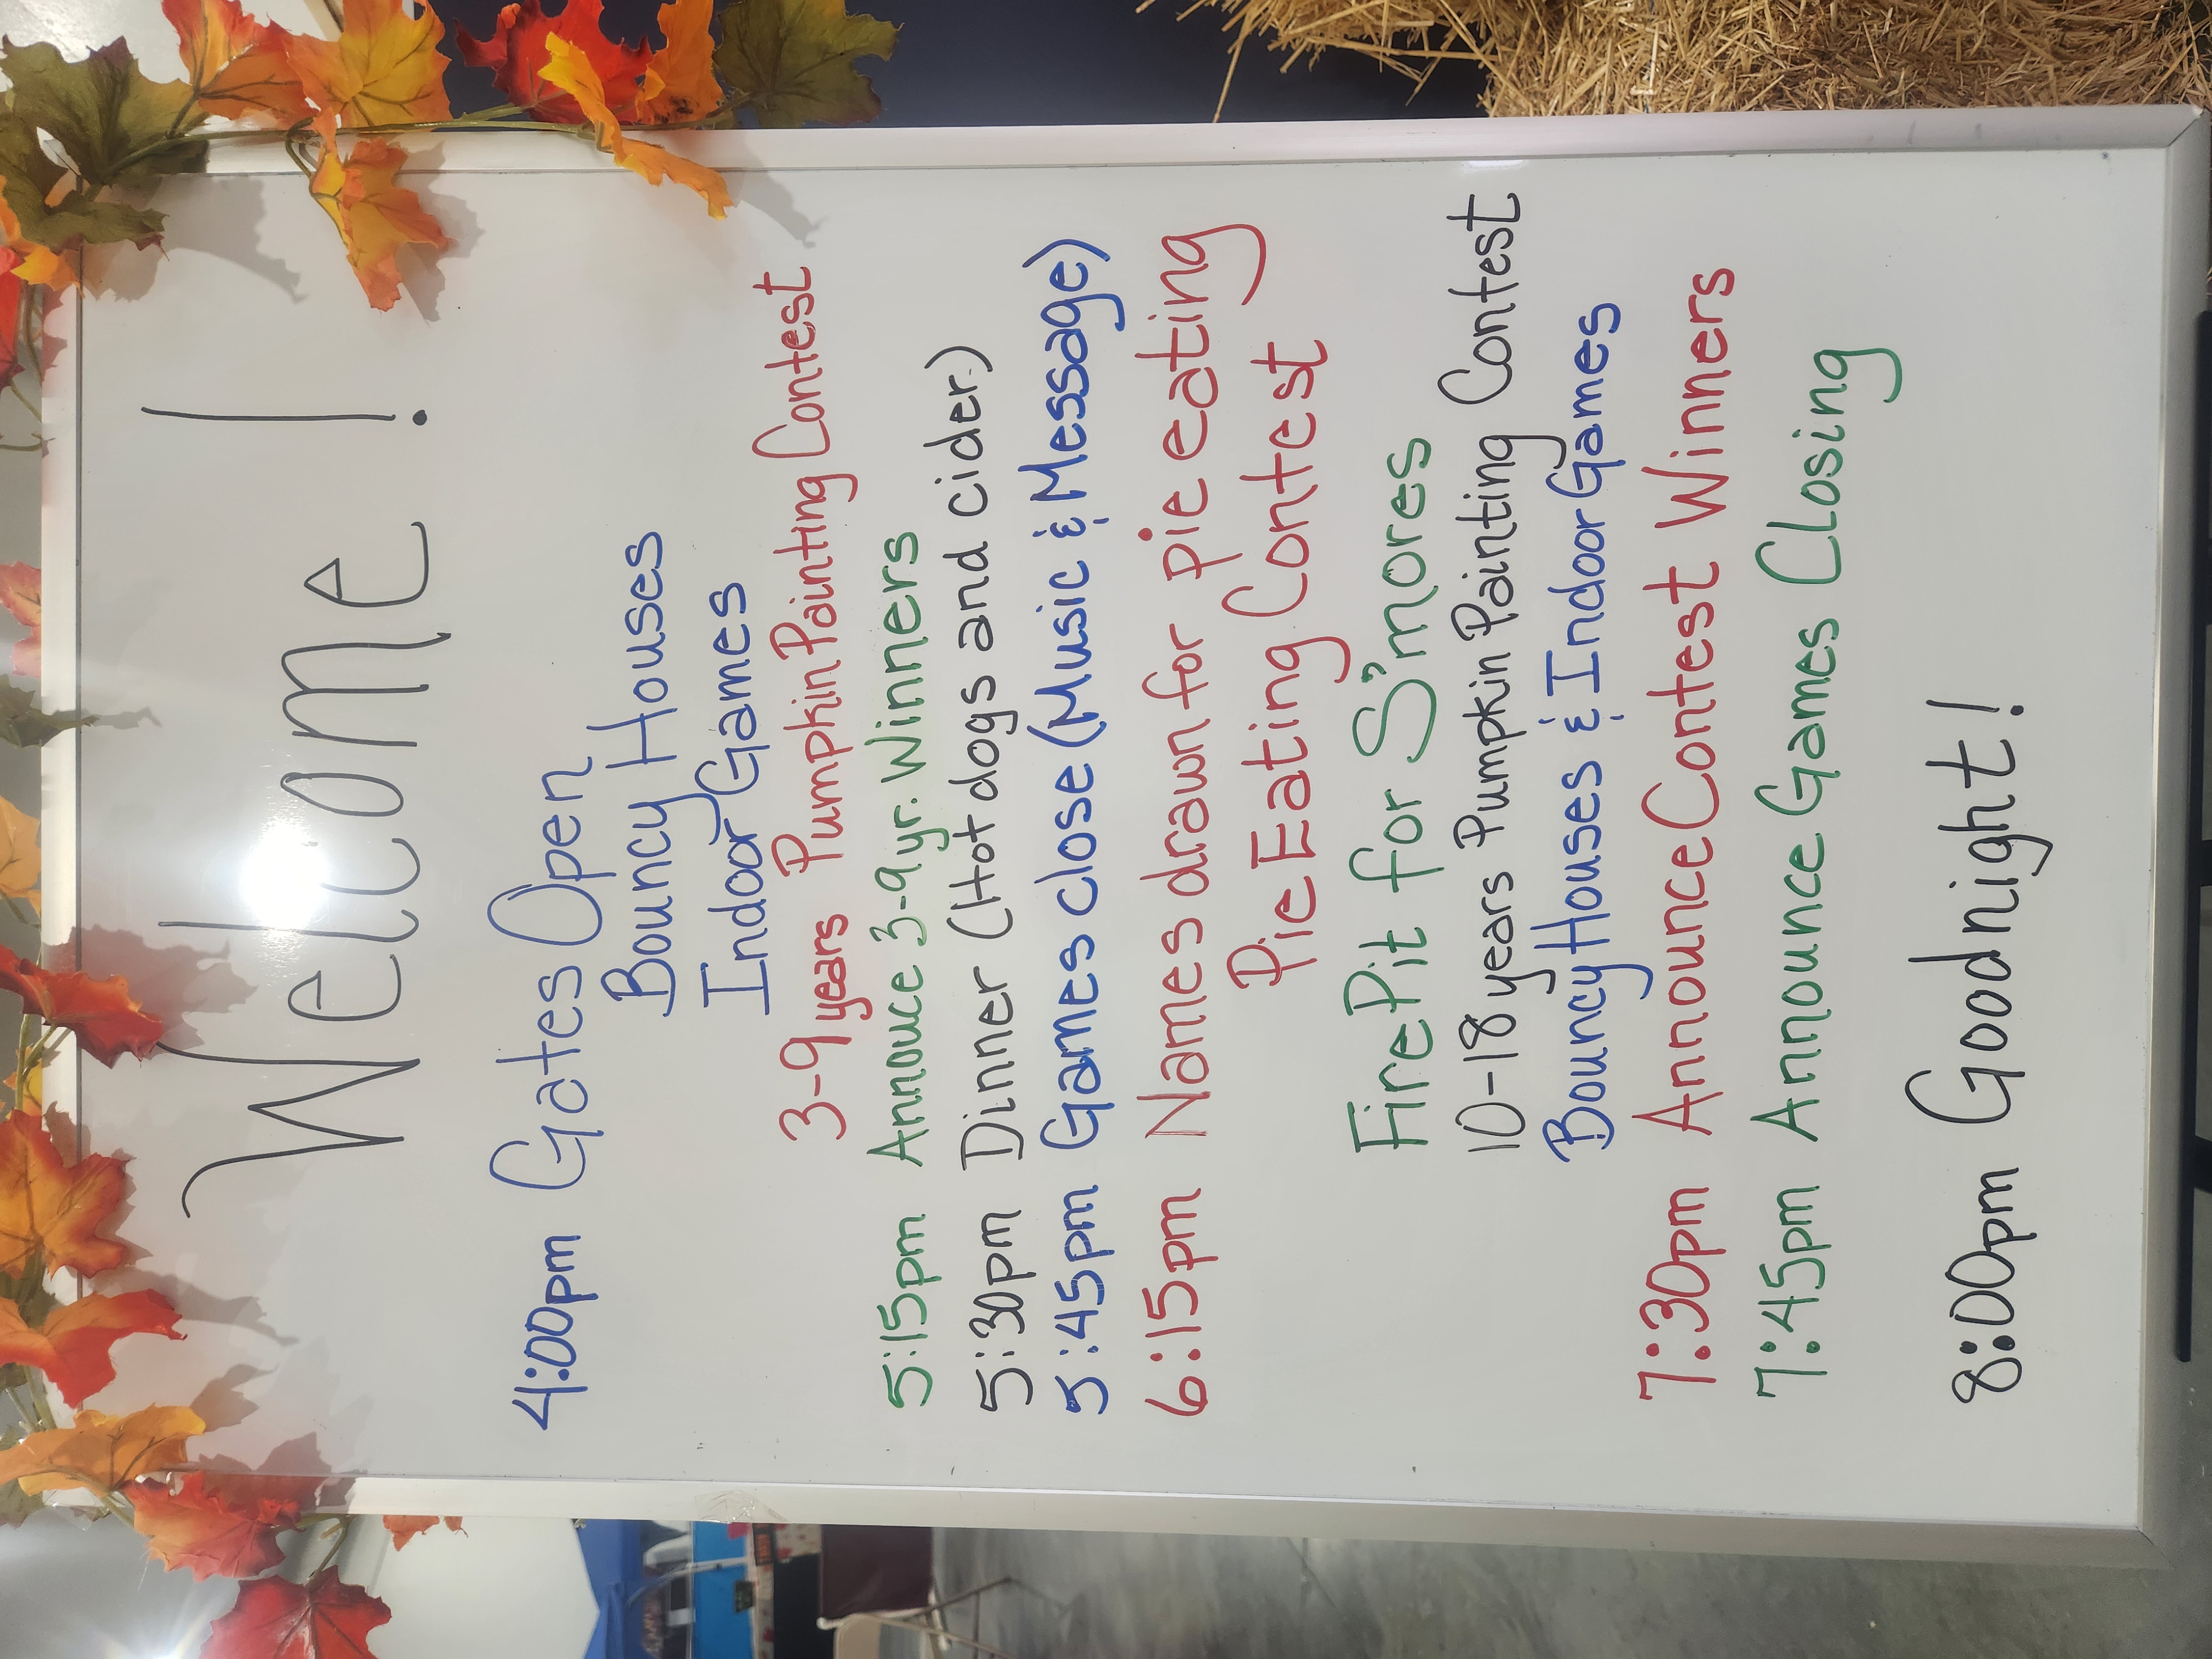 Welcome!
4:00pm Gates Open
Bouncy Houses
Indoor Games
3-9 years Pumpkin Painting Contest
5:15pm Annouce 3-9 yr. Winners
5:30pm Dinner (Hot dogs and cider)
5:45pm Games close (Music & Message)
6:15pm Names drawn for pie eating
Pie Eating Contest
Fire Pit for S'mores
10-18 years Pumpkin Painting Contest
Bouncy Houses & Indoor Games
7:30pm Announce Contest Winners
7:45pm Announce Games Closing
8:00pm Goodnight!